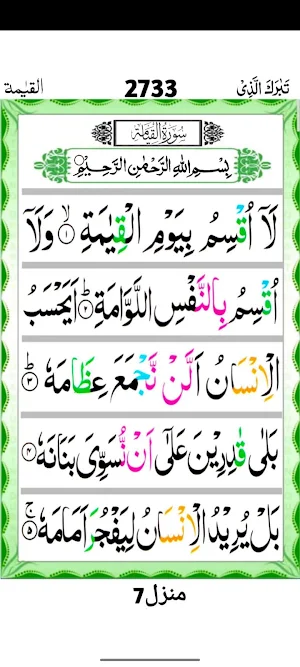 تَبٰرَكَ الَّذِىْ 2733 القيٰمة
سُوْرَةُ الْقِيٰمَةِ
بِسْمِ اللهِ الرَّحْمٰنِ الرَّحِيْمِ
لَآ اُقْسِمُ بِيَوْمِ الْقِيٰمَةِ ۙ‏﴿۱﴾ وَلَآ
اُقْسِمُ بِالنَّفْسِ اللَّوَّامَةِ ؕ‏﴿۲﴾ اَيَحْسَبُ
الْاِنْسَانُ اَلَّنْ نَّجْمَعَ عِظَامَهٗ ؕ‏﴿۳﴾
بَلٰى قٰدِرِيْنَ عَلٰٓى اَنْ نُّسَوِّىَ بَنَانَهٗ‏﴿۴﴾
بَلْ يُرِيْدُ الْاِنْسَانُ لِيَفْجُرَ اَمَامَهٗ ۚ‏﴿۵﴾
منزل7